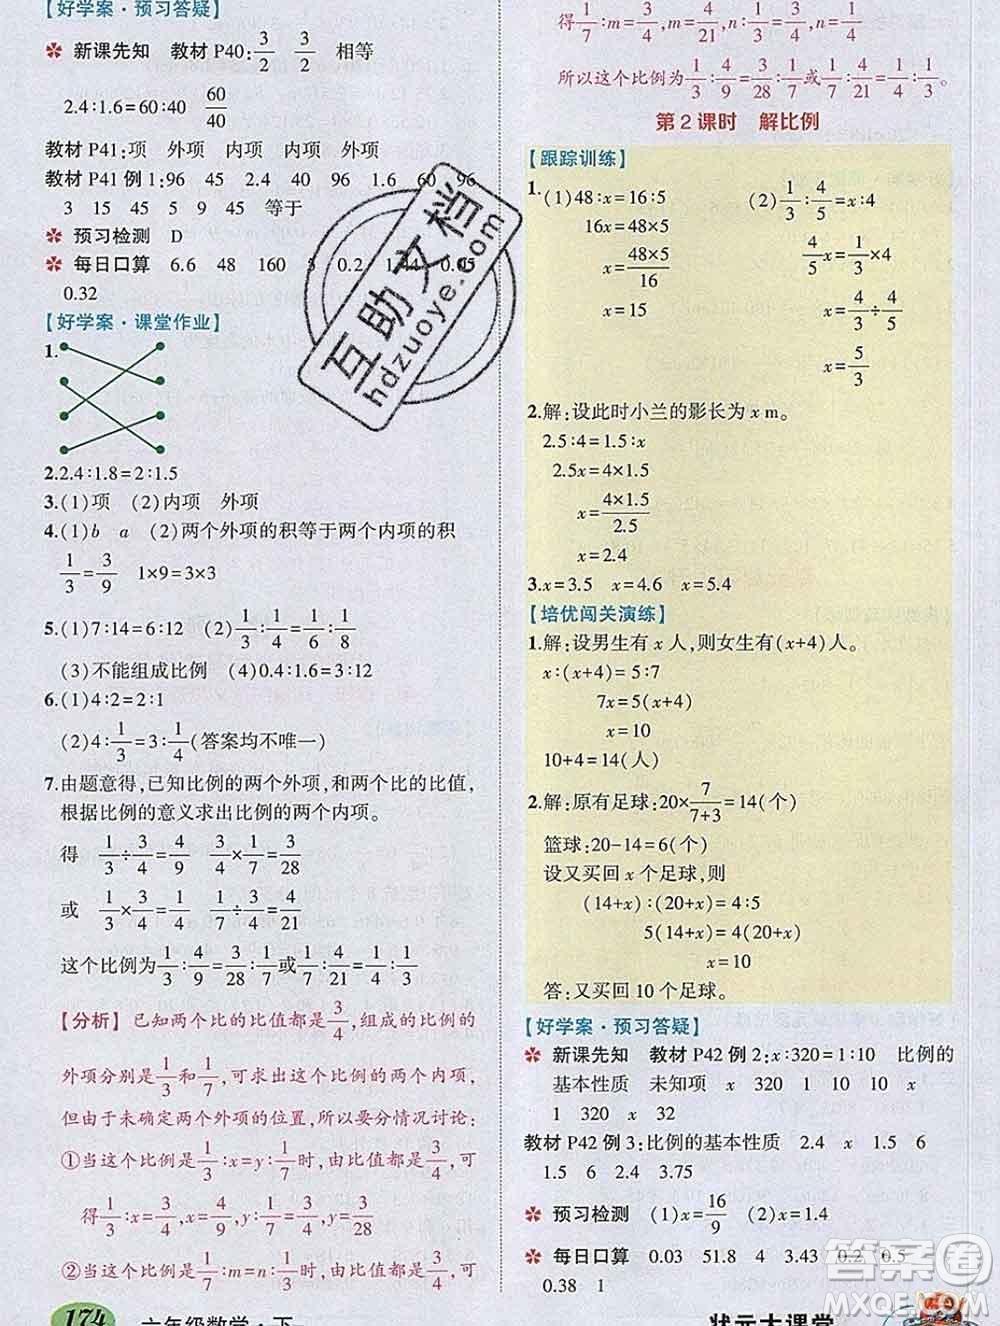 【好学案·预习答疑】
新课先知 教材 P40: 3/2 3/2 相等
2.4∶1.6=60∶40 60/40
教材 P41:项 外项 内项 内项 外项
教材 P41 例 1:96 45 2.4 40 96 1.6 60 96
3 15 2 5 9 45 等于
预习检测 D
每日口算 6.6 48 160 5 0.2 0.45
0.32
【好学案·课堂作业】
1.
2.2.4∶1.8=2∶1.5
3.(1)项 (2)内项 外项
4.(1)b a (2)两个外项的积等于两个内项的积
1/3=3/9 1×9=3×3
5.(1)7∶14=6∶12 (2)1/3∶1/4=1/6∶1/8
(3)不能组成比例 (4)0.4∶1.6=3∶12
6.(1)4∶2=2∶1
(2)4∶1/3=3∶1/4(答案均不唯一)
7.由题意得,已知比例的两个外项,和两个比的比值,
根据比例的意义求出比例的两个内项。
得 1/3÷3/4=4/9 3/4×1/7=3/28
或 1/3×3/4=1/4 1/7÷3/4=4/21
这个比例为1/3∶4/9=3/28∶1/7或1/7∶4/21=1/4∶1/3
【分析】 已知两个比的比值都是3/4,组成的比例的
外项分别是1/3和1/7,可求出这个比例的两个内项,
但由于未确定两个外项的位置,所以要分情况讨论:
①当这个比例是1/3∶x=y∶1/7时,由比值都是3/4,可
得1/3∶x=3/4,x=4/9,y∶1/7=3/4,y=3/28
②当这个比例是1/7∶m=n∶1/3时,由比值都是3/4,可
174 六年级数学·下
得1/7∶m=3/4,m=4/21,n∶1/3=3/4,n=1/4
所以这个比例为1/3∶4/9=3/28∶1/7或1/7∶4/21=1/4∶1/3
第 2 课时 解比例
【跟踪训练】
1.(1)48∶x=16∶5 (2)1/3∶4/5=x∶4
16x=48×5 4/5x=1/3×4
x=48×5/16 x=4/3÷4/5
x=15 x=5/3
2.解:设此时小兰的影长为 x m。
2.5∶4=1.5∶x
2.5x=4×1.5
x=4×1.5/2.5
x=2.4
3.x=3.5 x=4.6 x=5.4
【培优闯关演练】
1.解:设男生有 x 人,则女生有(x+4)人。
x∶(x+4)=5∶7
7x=5(x+4)
x=10
10+4=14(人)
2.解:原有足球:20×7/7+3=14(个)
篮球:20-14=6(个)
设又买回 x 个足球,则
(14+x)∶(20+x)=4∶5
5(14+x)=4(20+x)
x=10
答:又买回 10 个足球。
【好学案·预习答疑】
新课先知 教材 P42 例 2:x∶320=1∶10 比例的
基本性质 未知项 x 320 1 10 10 x
1 320 x 32
教材 P42 例 3:比例的基本性质 2.4 x 1.5 6
1.5 6 2.4 3.75
预习检测 (1)x=16/9 (2)x=1.4
每日口算 0.03 51.8 4 3.43 0.2 0.5
0.38 1
状元大课堂
互助文档
hdzuoye.com
答案圈
MXQE.COM